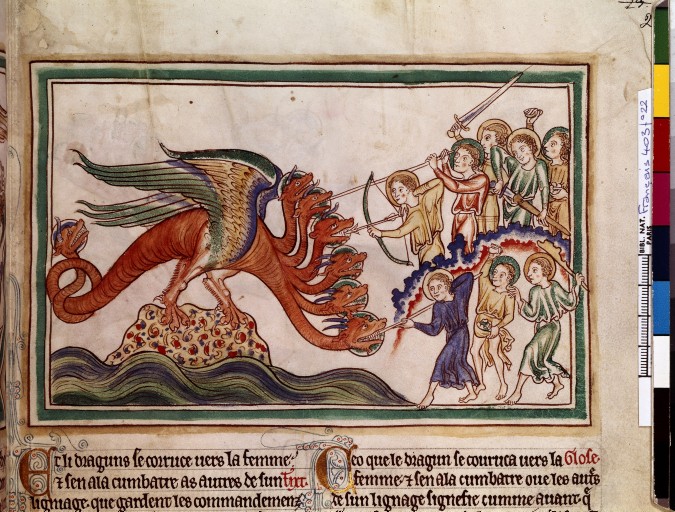 Et li draguns se corruce uers la femme.
⁊ sen ala cumbatre as autres de sun
lignage que gardent les commandemenz
Ceo que le dragun se couruca uers la Glose
femme. ⁊ sen ala cumbatre oue les
de sun lignage signefie cumme auant
BIBL. NAT.
PARIS
Français 403 fo 22